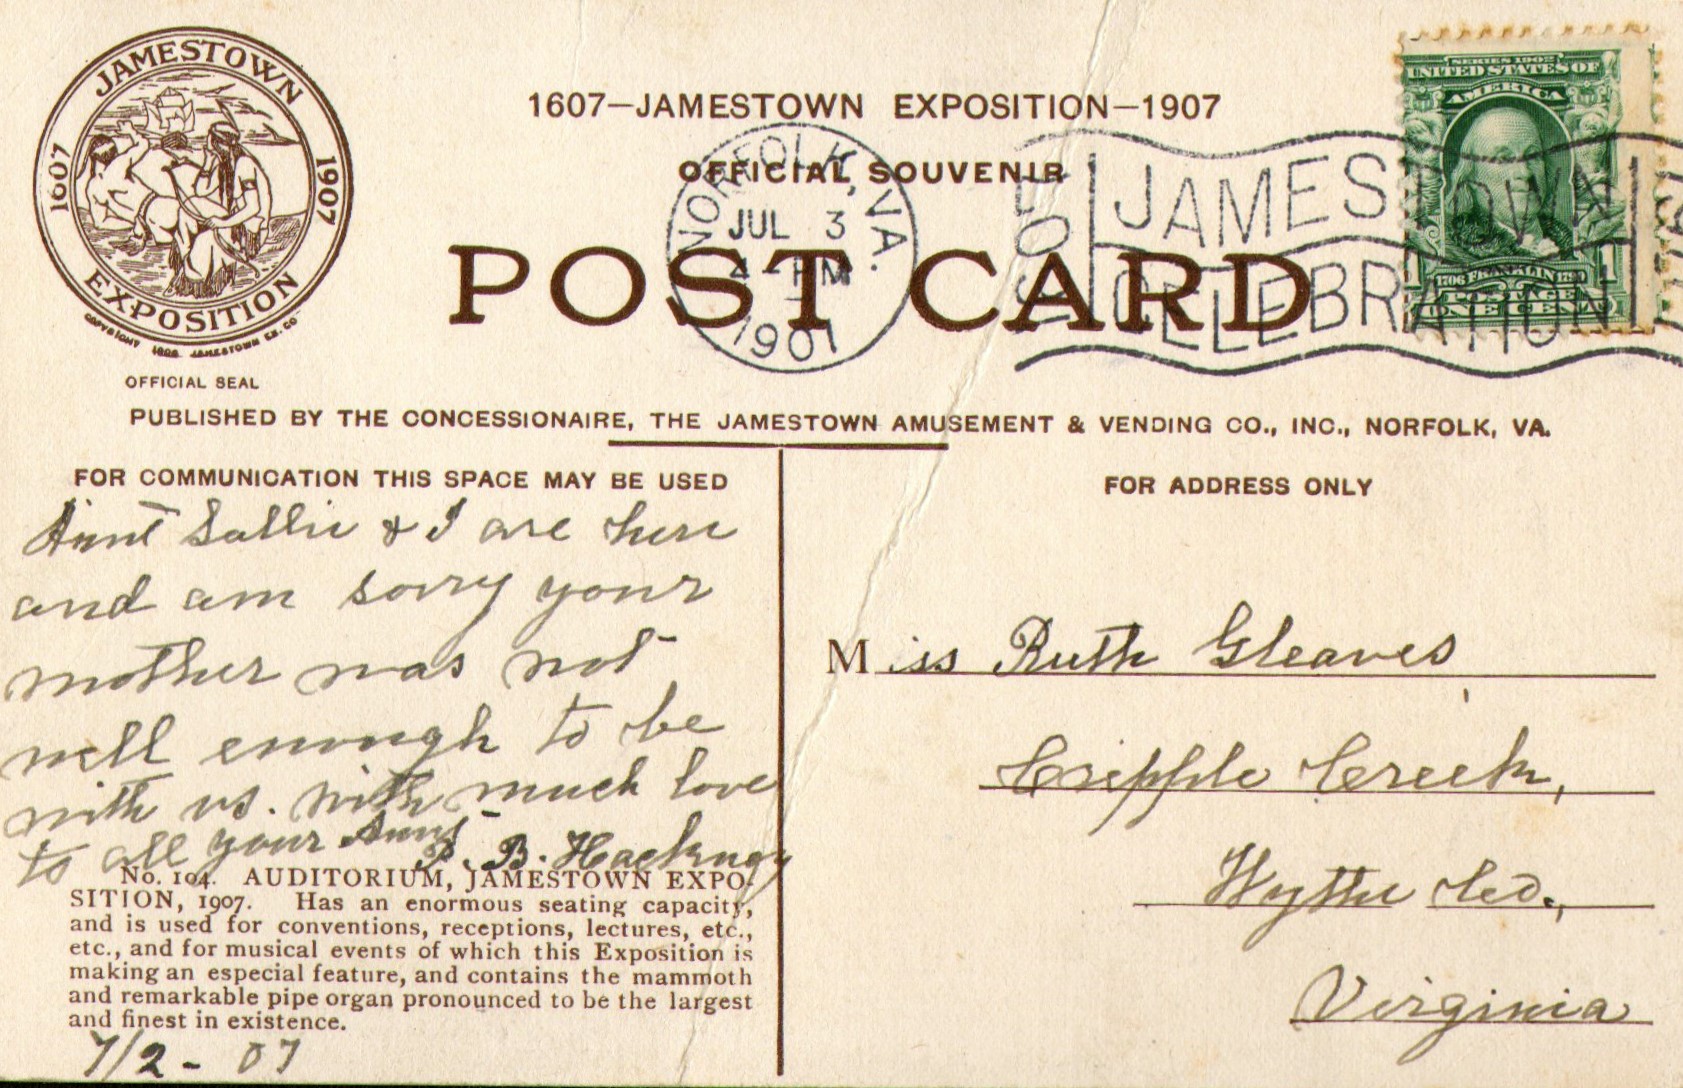 JAMESTOWN
1607 1907
EXPOSITION
COPYRIGHT 1906 JAMESTOWN EX. CO
OFFICIAL SEAL
1607—JAMESTOWN EXPOSITION—1907
OFFICIAL SOUVENIR
POST CARD
NORFOLK, VA.
JUL 3
4-PM
1907
1607 JAMESTOWN 1907
CELEBRATION
SERIES 1902
UNITED STATES OF
AMERICA
1706 FRANKLIN 1790
POSTAGE 1
ONE CENT
PUBLISHED BY THE CONCESSIONAIRE, THE JAMESTOWN AMUSEMENT & VENDING CO., INC., NORFOLK, VA.
FOR COMMUNICATION THIS SPACE MAY BE USED
Aunt Sallie & I are here
and am sorry your
mother was not
well enough to be
with us. with much love
to all your Aunt
B. Hackney
No. 104. AUDITORIUM, JAMESTOWN EXPO-
SITION, 1907. Has an enormous seating capacity,
and is used for conventions, receptions, lectures, etc.,
etc., and for musical events of which this Exposition is
making an especial feature, and contains the mammoth
and remarkable pipe organ pronounced to be the largest
and finest in existence.
7/2 - 07
FOR ADDRESS ONLY
Miss Ruth Gleaves
Cripple Creek,
Wythe Co.,
Virginia